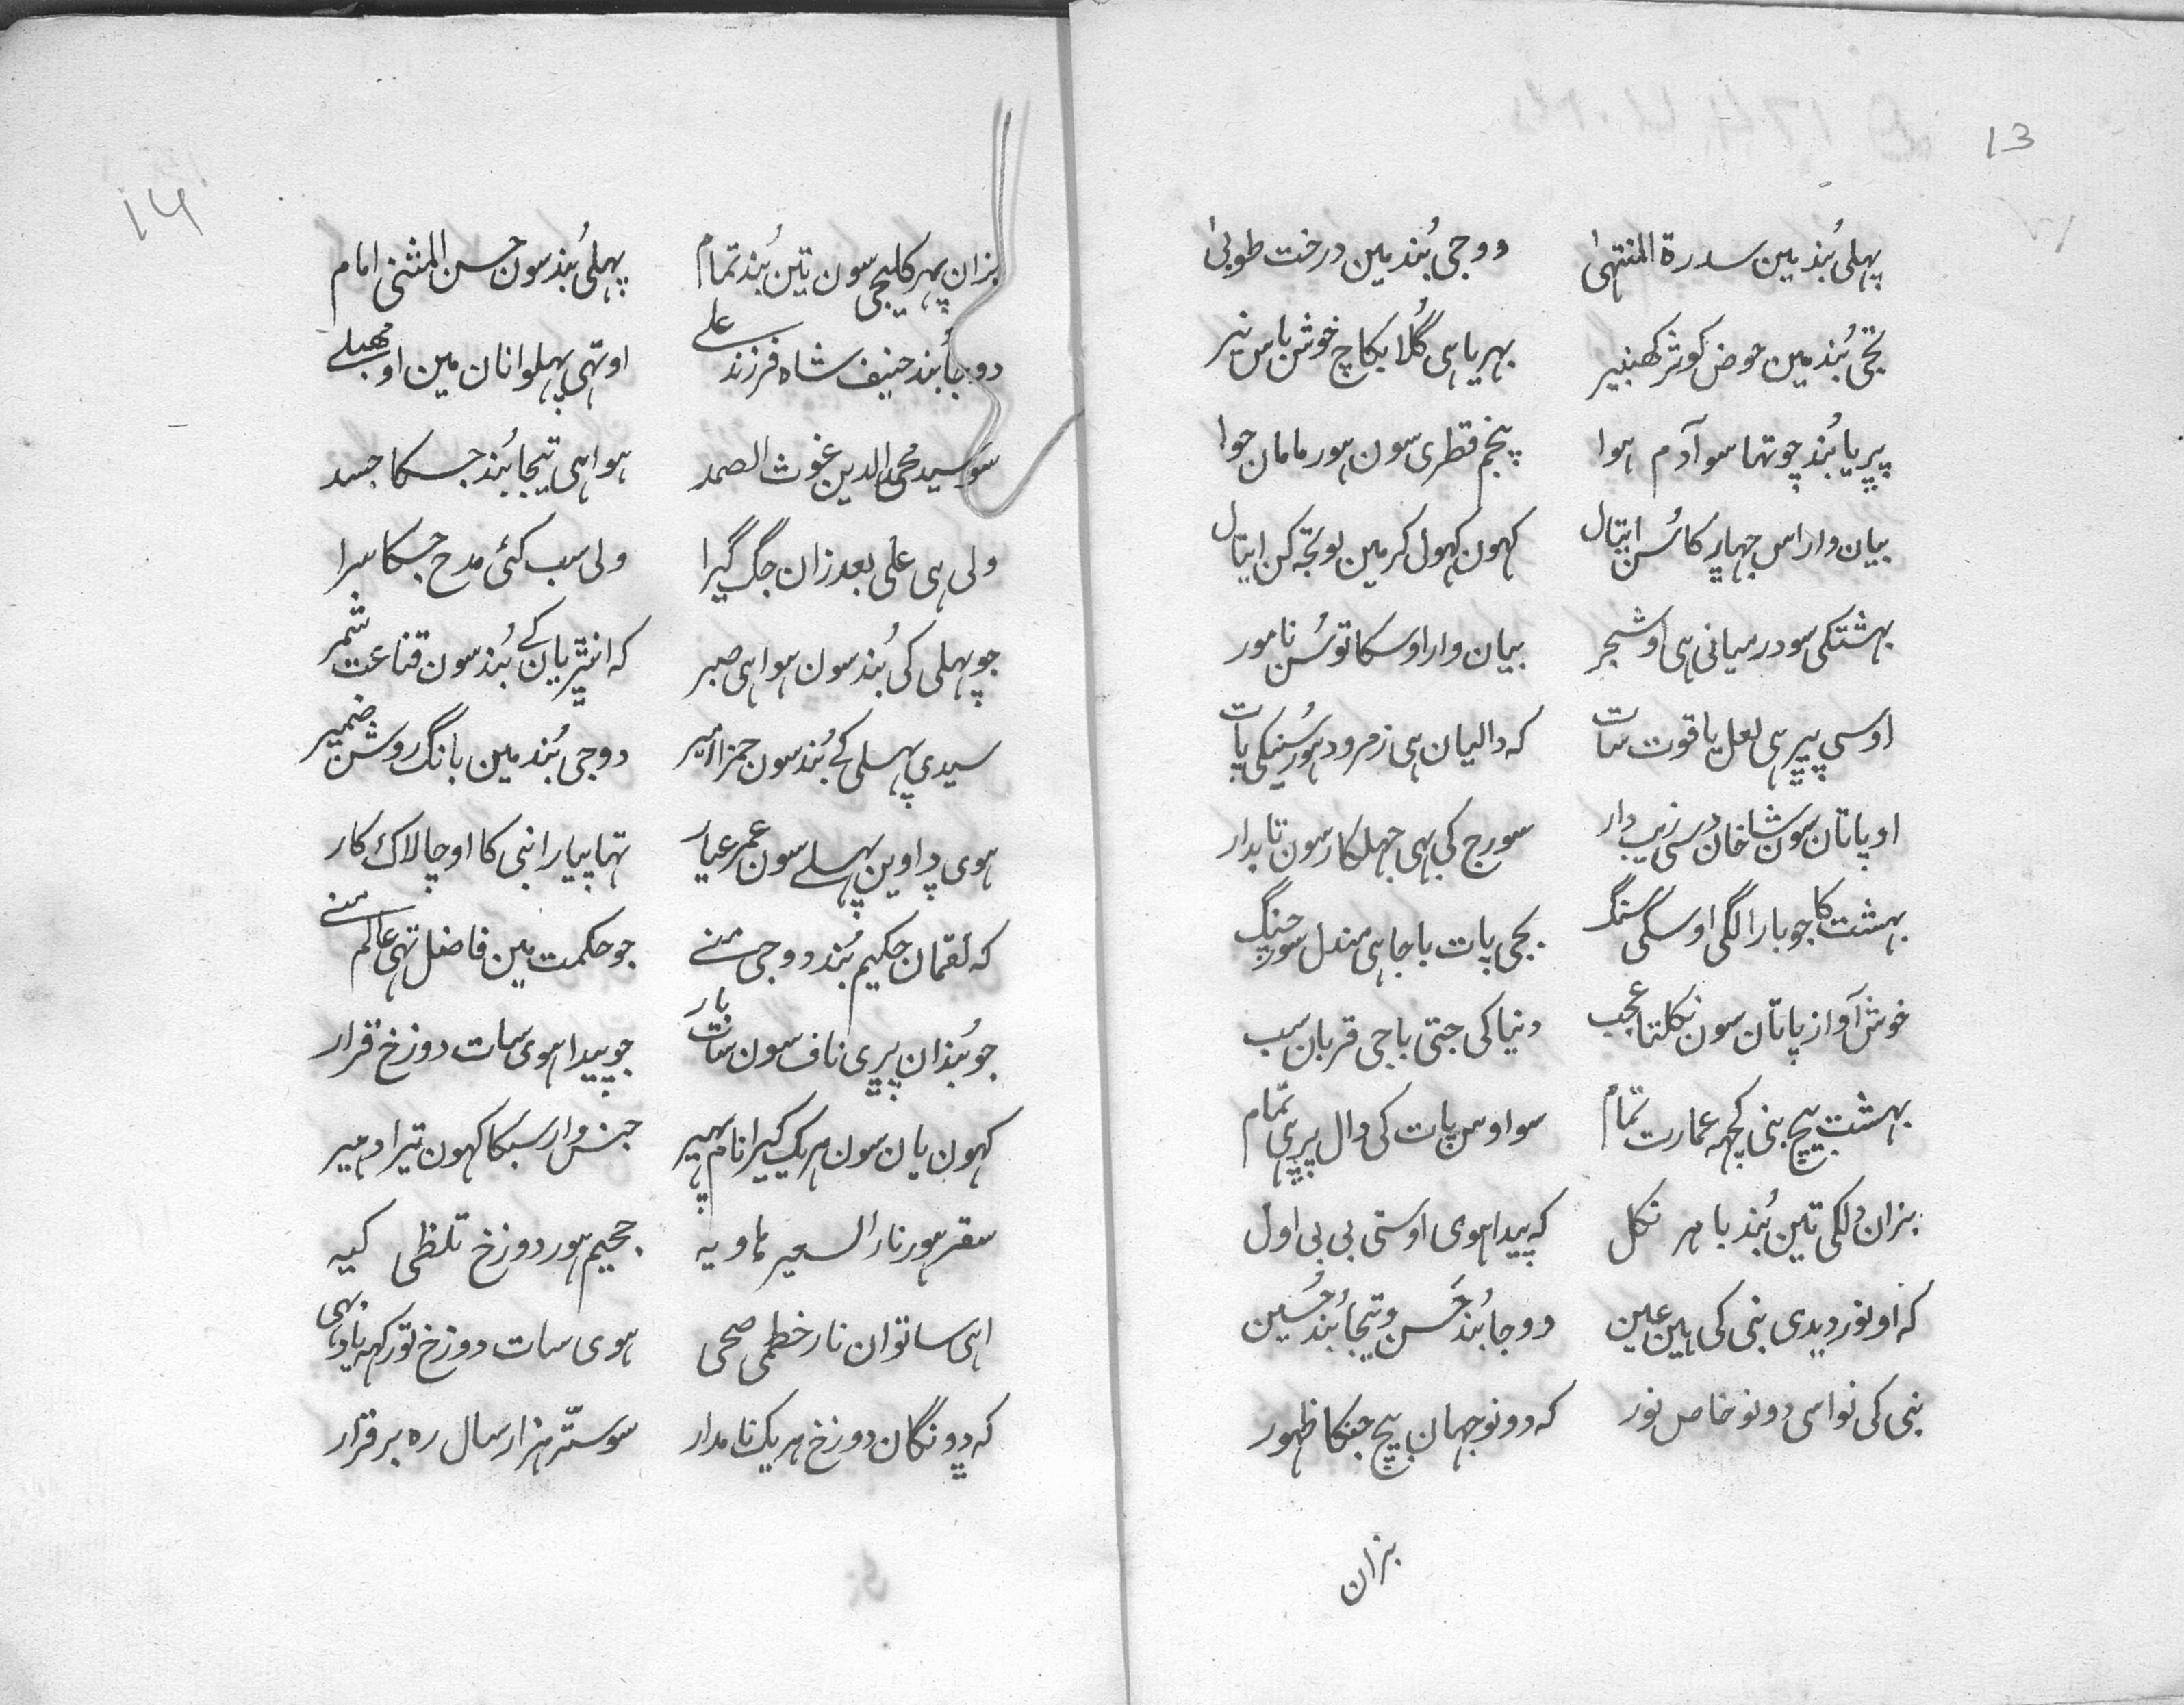 13
پہلی بُند مین سدرۃ المنتہیٰ دوجی بُند مین درخت طوبیٰ
تجی بُند مین حوض کوثر کھنبیر بہریا ہی گلابکاچ خوش باس نیر
پریا بُند چوتہا سو آدم ہوا پنجم قطری سون ہور مامان حوا
بیان وار اس جہاڑ کا سُن ایتال کہون کہول کر مین تو تجہ کن ایتال
بہشتکی سو درمیانی ہی او شجر بیان وار اوسکا تو سُن نامور
اوسی پیر ہی لعل یاقوت سات کہ دالیان ہی زمرود ہور سُنیکی پات
او پاتان سون شاخان دسی زیب دار سورج کی بہی جہلکار سون تابدار
بہشت کا جو بارا لگی اوسکی سنگ بجی پات باجا ہی مندل سور چنگ
خوش آواز پاتان سون نکلتا عجب دنیا کی جتی باجی قربان سب
بہشت بیچ بنی کچہ عمارت تمام سو اوس پات کی دال پر ہی تمام
بزان دلکی تین بُند باہر نکل کہ پیدا ہوی اوستی بی بی اول
کہ او نور دیدی بنی کی ہین عین دوجا بُند حَسن و تیجا بُند حُسین
بنی کی نواسی دونو خاص نور کہ دونو جہان بیچ جنکا ظہور
بزان
14
بزان پہر کلیجی سون تین بُند تمام پہلی بُند سون حسن المثنی امام
دوجا بُند حنیف شاہ فرزند علی اوتہی پہلوانان مین او مہبلے
سو سید محی الدین غوث الصمد ہوا ہی تیجا بُند جسکا جسد
ولی ہی علی بعد زان جگ گیرا ولی سب کئی مدح جسکا سرا
جو پہلی کی بُند سون ہوا ہی صبر کہ انتڑیان کے بُند سون قناعت شمر
سیدی پہسلی کے بُند سون حمزا امیر دوجی بُند مین بانگ روشن ضمیر
ہوی داوین پہسلے سون عمر عیار تہا پیارا بنی کا او چالاک کار
کہ لقمان حکیم بُند دوجی منے جو حکمت مین فاضل تہی عالم منے
جو بُندان پری ناف سون سات بار جو پیدا ہوی سات دوزخ قرار
کہون یان سون ہریک کیرا نام پہیر جنس وار سبکا کہون تیرا دہیر
سقر ہور نار السعیر ہاویہ جحیم ہور دوزخ تلظی کیہ
اہی ساتوان نار خطمی صحی ہوی سات دوزخ تو رکہہ یاد بہی
کہ دونگان دوزخ ہریک نامدار سو ستّر ہزار سال رہ برقرار